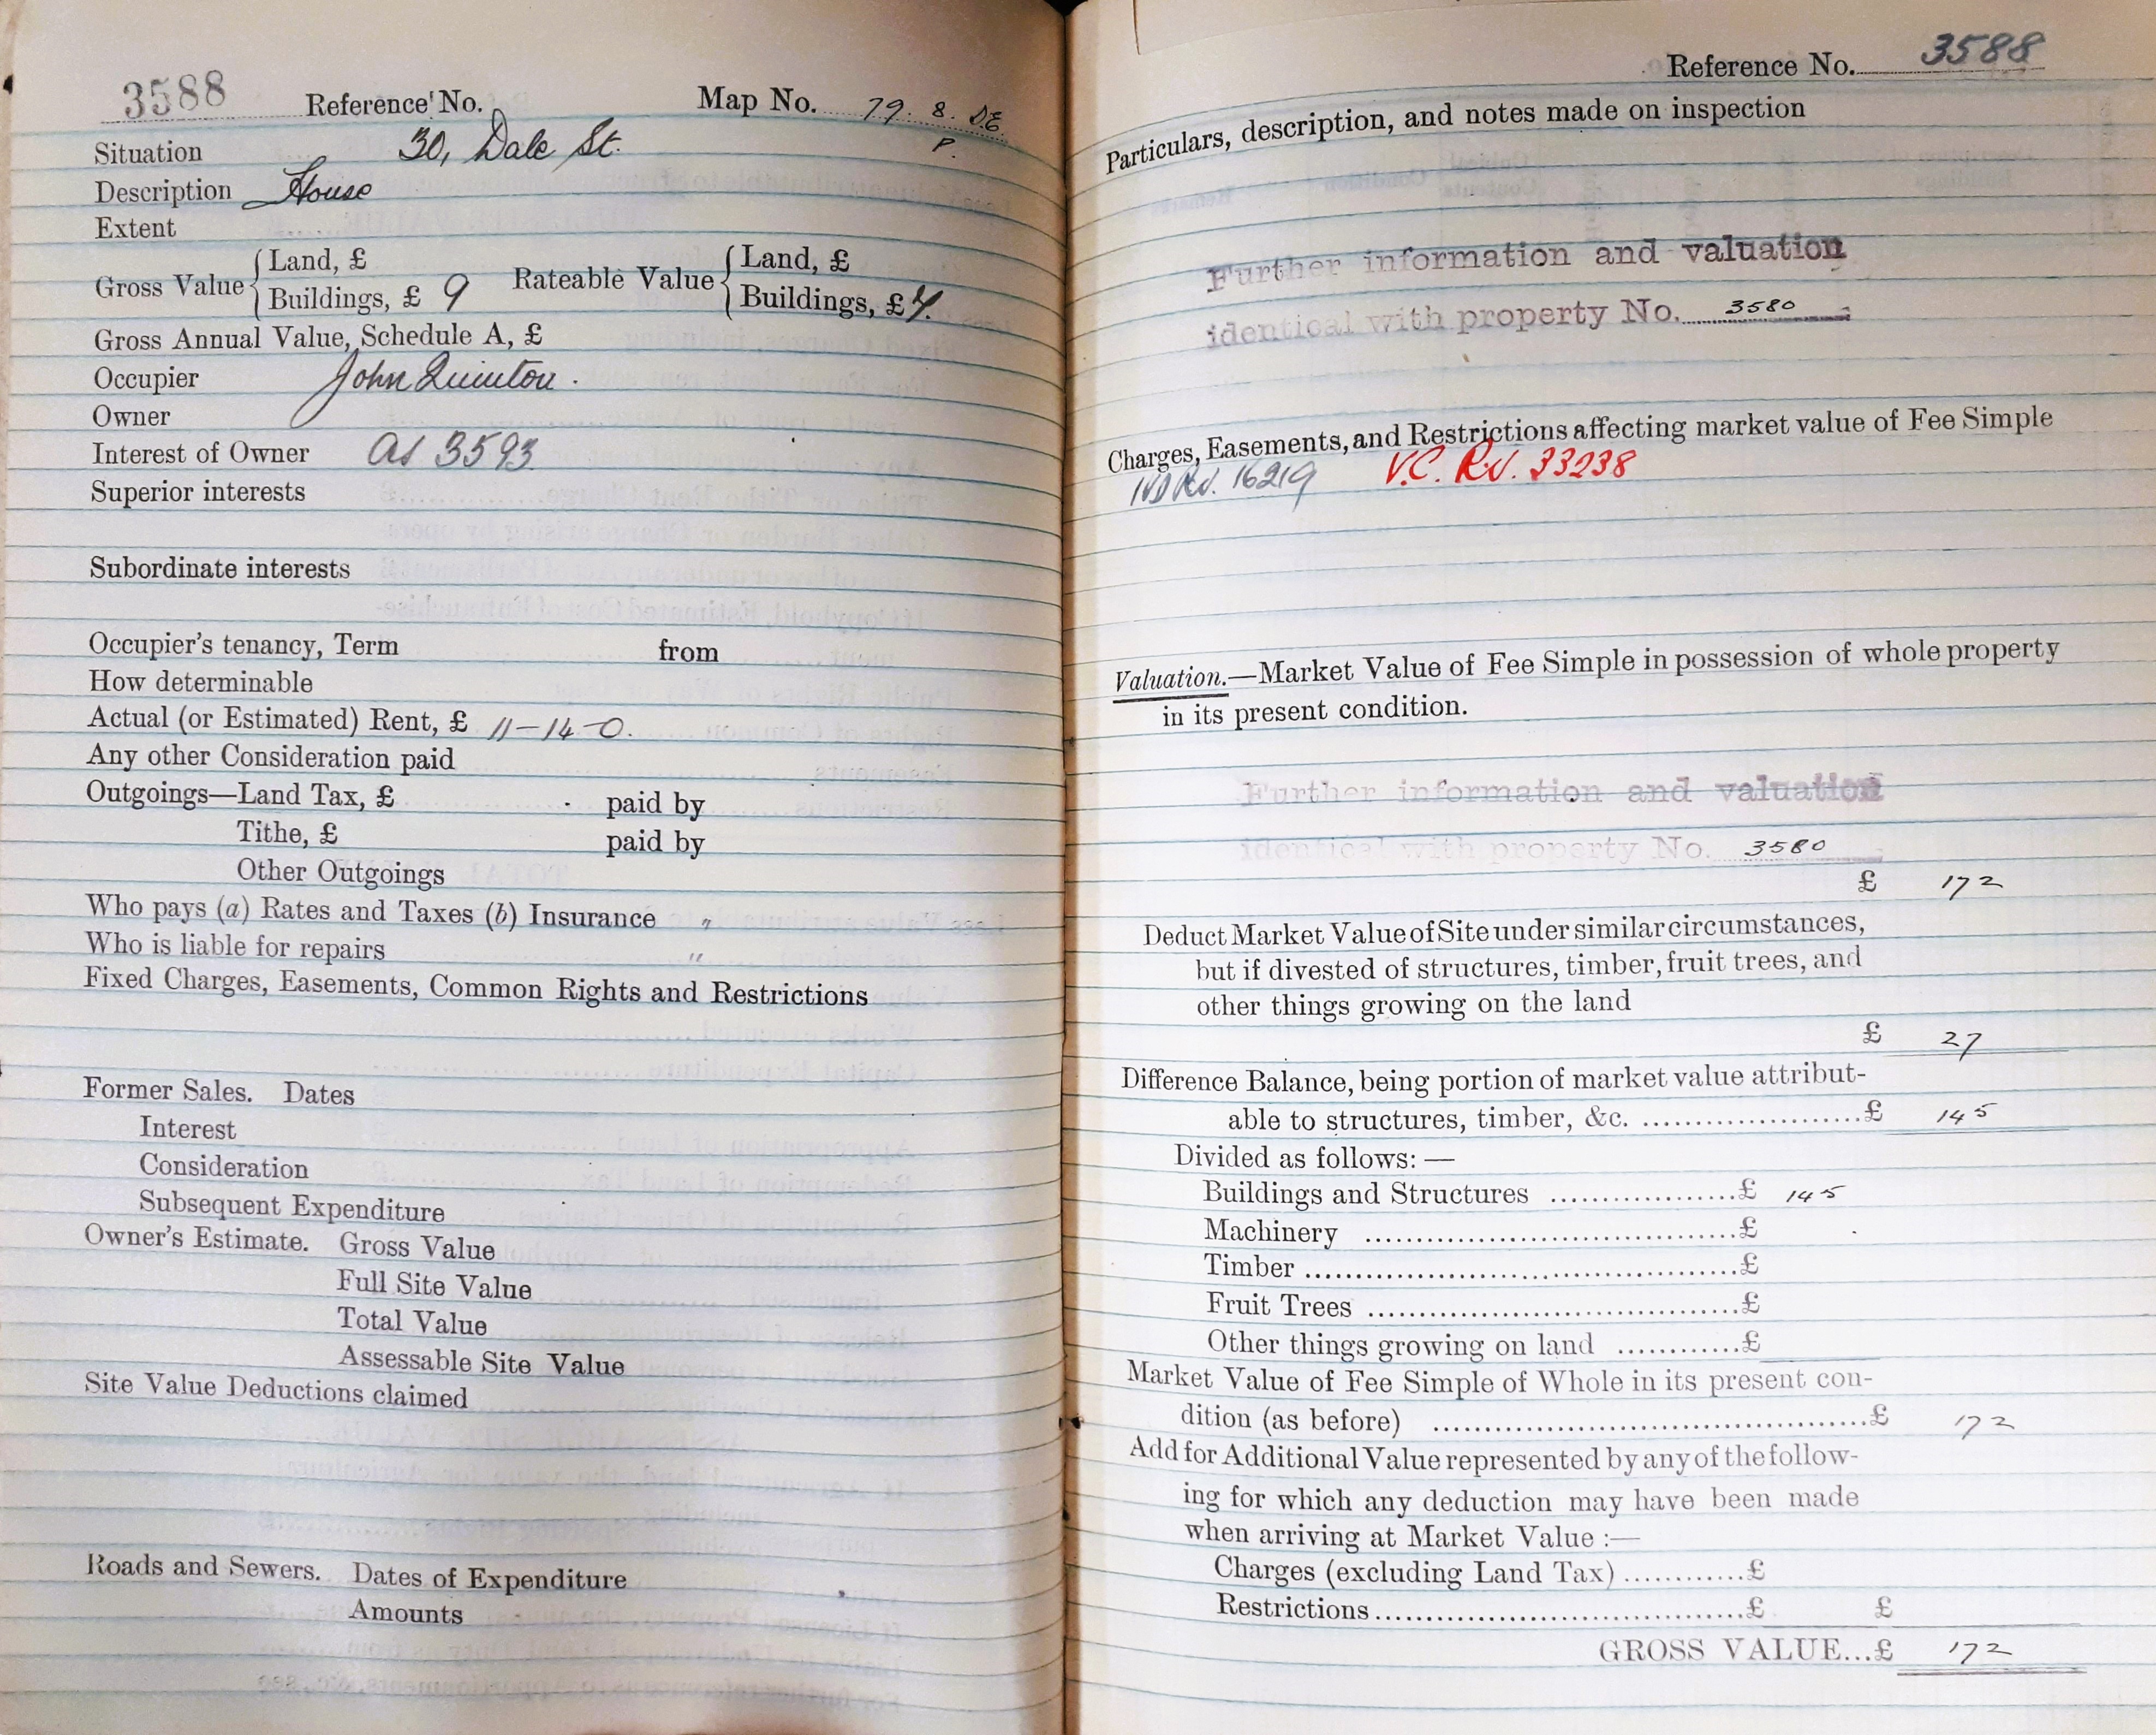 3588 Reference No. Map No. 79. 8. DE
P.
Situation 30, Dale St.
Description House
Extent
Gross Value { Land, £ Rateable Value { Land, £
Buildings, £ 9 Buildings, £ 7.
Gross Annual Value, Schedule A, £
Occupier John Quinton.
Owner
Interest of Owner as 3593
Superior interests
Subordinate interests
Occupier's tenancy, Term from
How determinable
Actual (or Estimated) Rent, £ 11-14-0.
Any other Consideration paid
Outgoings—Land Tax, £ paid by
Tithe, £ paid by
Other Outgoings
Who pays (a) Rates and Taxes (b) Insurance "
Who is liable for repairs "
Fixed Charges, Easements, Common Rights and Restrictions
Former Sales. Dates
Interest
Consideration
Subsequent Expenditure
Owner's Estimate. Gross Value
Full Site Value
Total Value
Assessable Site Value
Site Value Deductions claimed
Roads and Sewers. Dates of Expenditure
Amounts
Reference No. 3588
Particulars, description, and notes made on inspection
Further information and valuation
identical with property No. 3580
Charges, Easements, and Restrictions affecting market value of Fee Simple
16219 V.C. Rd. 33238
Valuation.—Market Value of Fee Simple in possession of whole property
in its present condition.
Further information and valuation
identical with property No. 3580
£ 172
Deduct Market Value of Site under similar circumstances,
but if divested of structures, timber, fruit trees, and
other things growing on the land
£ 27
Difference Balance, being portion of market value attribut-
able to structures, timber, &c. ....................£ 145
Divided as follows: —
Buildings and Structures ..................£ 145
Machinery ....................................£
Timber ..........................................£
Fruit Trees ....................................£
Other things growing on land ............£
Market Value of Fee Simple of Whole in its present con-
dition (as before) ..........................................£ 172
Add for Additional Value represented by any of the follow-
ing for which any deduction may have been made
when arriving at Market Value :—
Charges (excluding Land Tax) ............£
Restrictions ....................................£ £
GROSS VALUE...£ 172